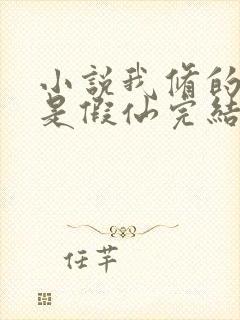 小説我脩的
是假仙完結
任芊